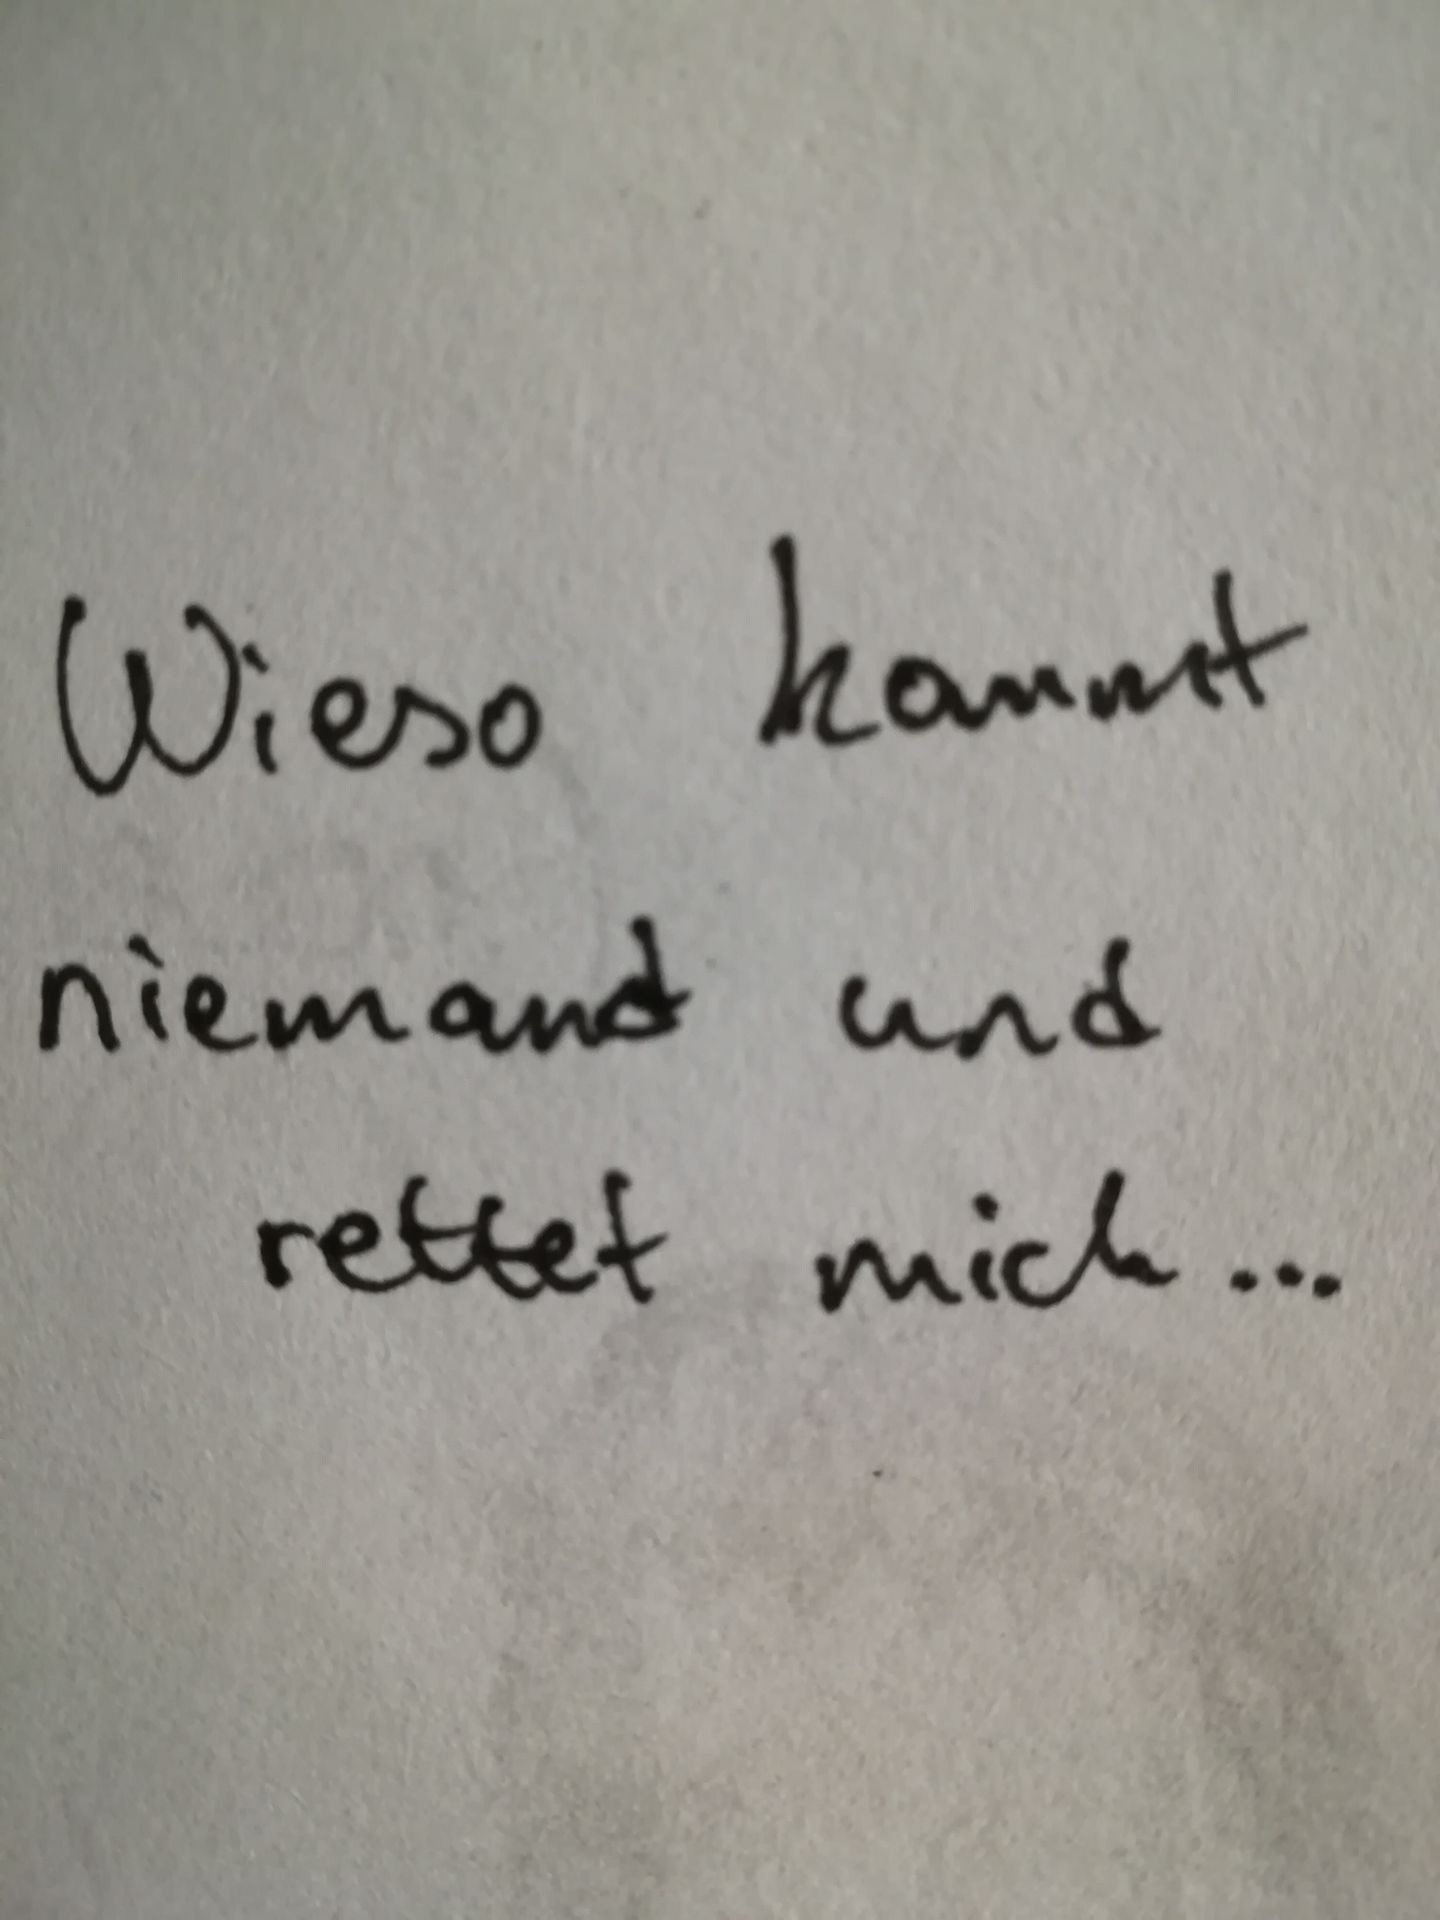 Wieso kommt
niemand und
rettet mich...